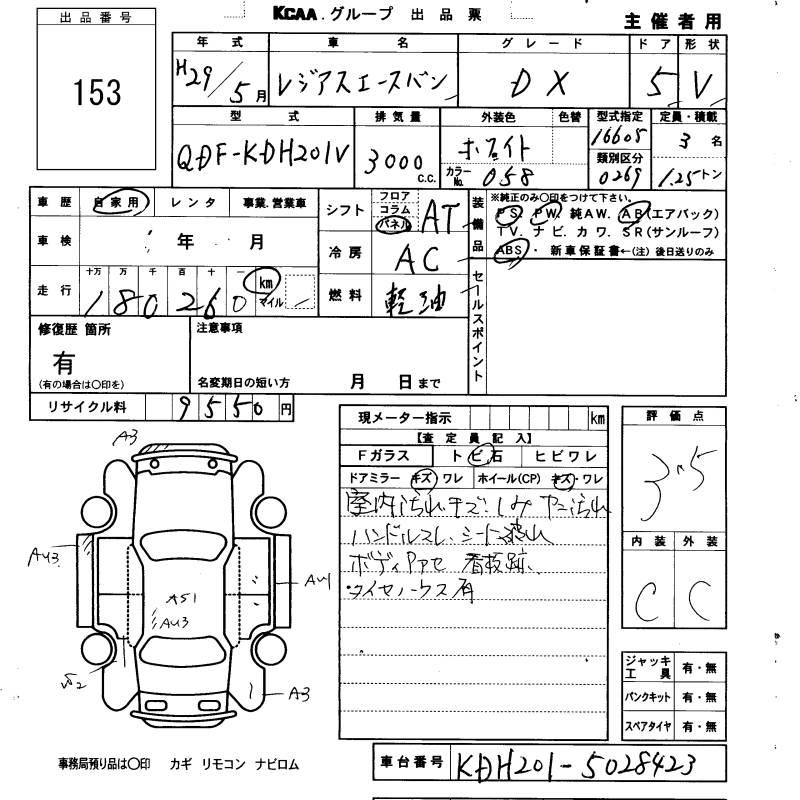 KCAA.グループ 出品票
主催者用
出品番号
153
年式 車名 グレード ドア 形状
H29/5月 レジアスエースバン DX 5 V
型式 排気量 外装色 色替 型式指定 定員・積載
QDF-KDH201V 3000 c.c. ホワイト 16605 3名
カラーNo. 058 類別区分 0269 1.25トン
車歴 自家用 レンタ 事業.営業車
車検 年 月
走行 十万 万 千 百 十 一 km マイル
180260
シフト フロア コラム パネル AT
冷房 AC
燃料 軽油
装備品
※純正のみ○印をつけて下さい。
PS. PW. 純AW. AB(エアバック)
TV. ナビ. カワ. SR(サンルーフ)
ABS・ 新車保証書←(注) 後日送りのみ
セールスポイント
修復歴 箇所
有
(有の場合は○印を)
注意事項
名変期日の短い方 月 日まで
リサイクル料 9550円
現メーター指示 km
【査定員記入】
Fガラス トビ石 ヒビワレ
ドアミラー キズ・ワレ ホイール(CP) キズ・ワレ
室内汚れ キズ・しみ ヤニ汚れ
ハンドルスレ、シート破れ
看板跡、
評価点
3.5
内装 外装
C C
ジャッキ工具 有・無
パンクキット 有・無
スペアタイヤ 有・無
A3
AU3
A51
AU3
A3
事務局預り品は○印 カギ リモコン ナビロム
車台番号 KDH201-5028423